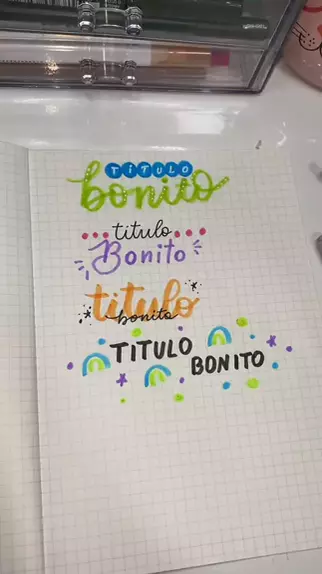 TÍTULO
bonito
titulo
Bonito
titulo
bonito
TITULO
BONITO